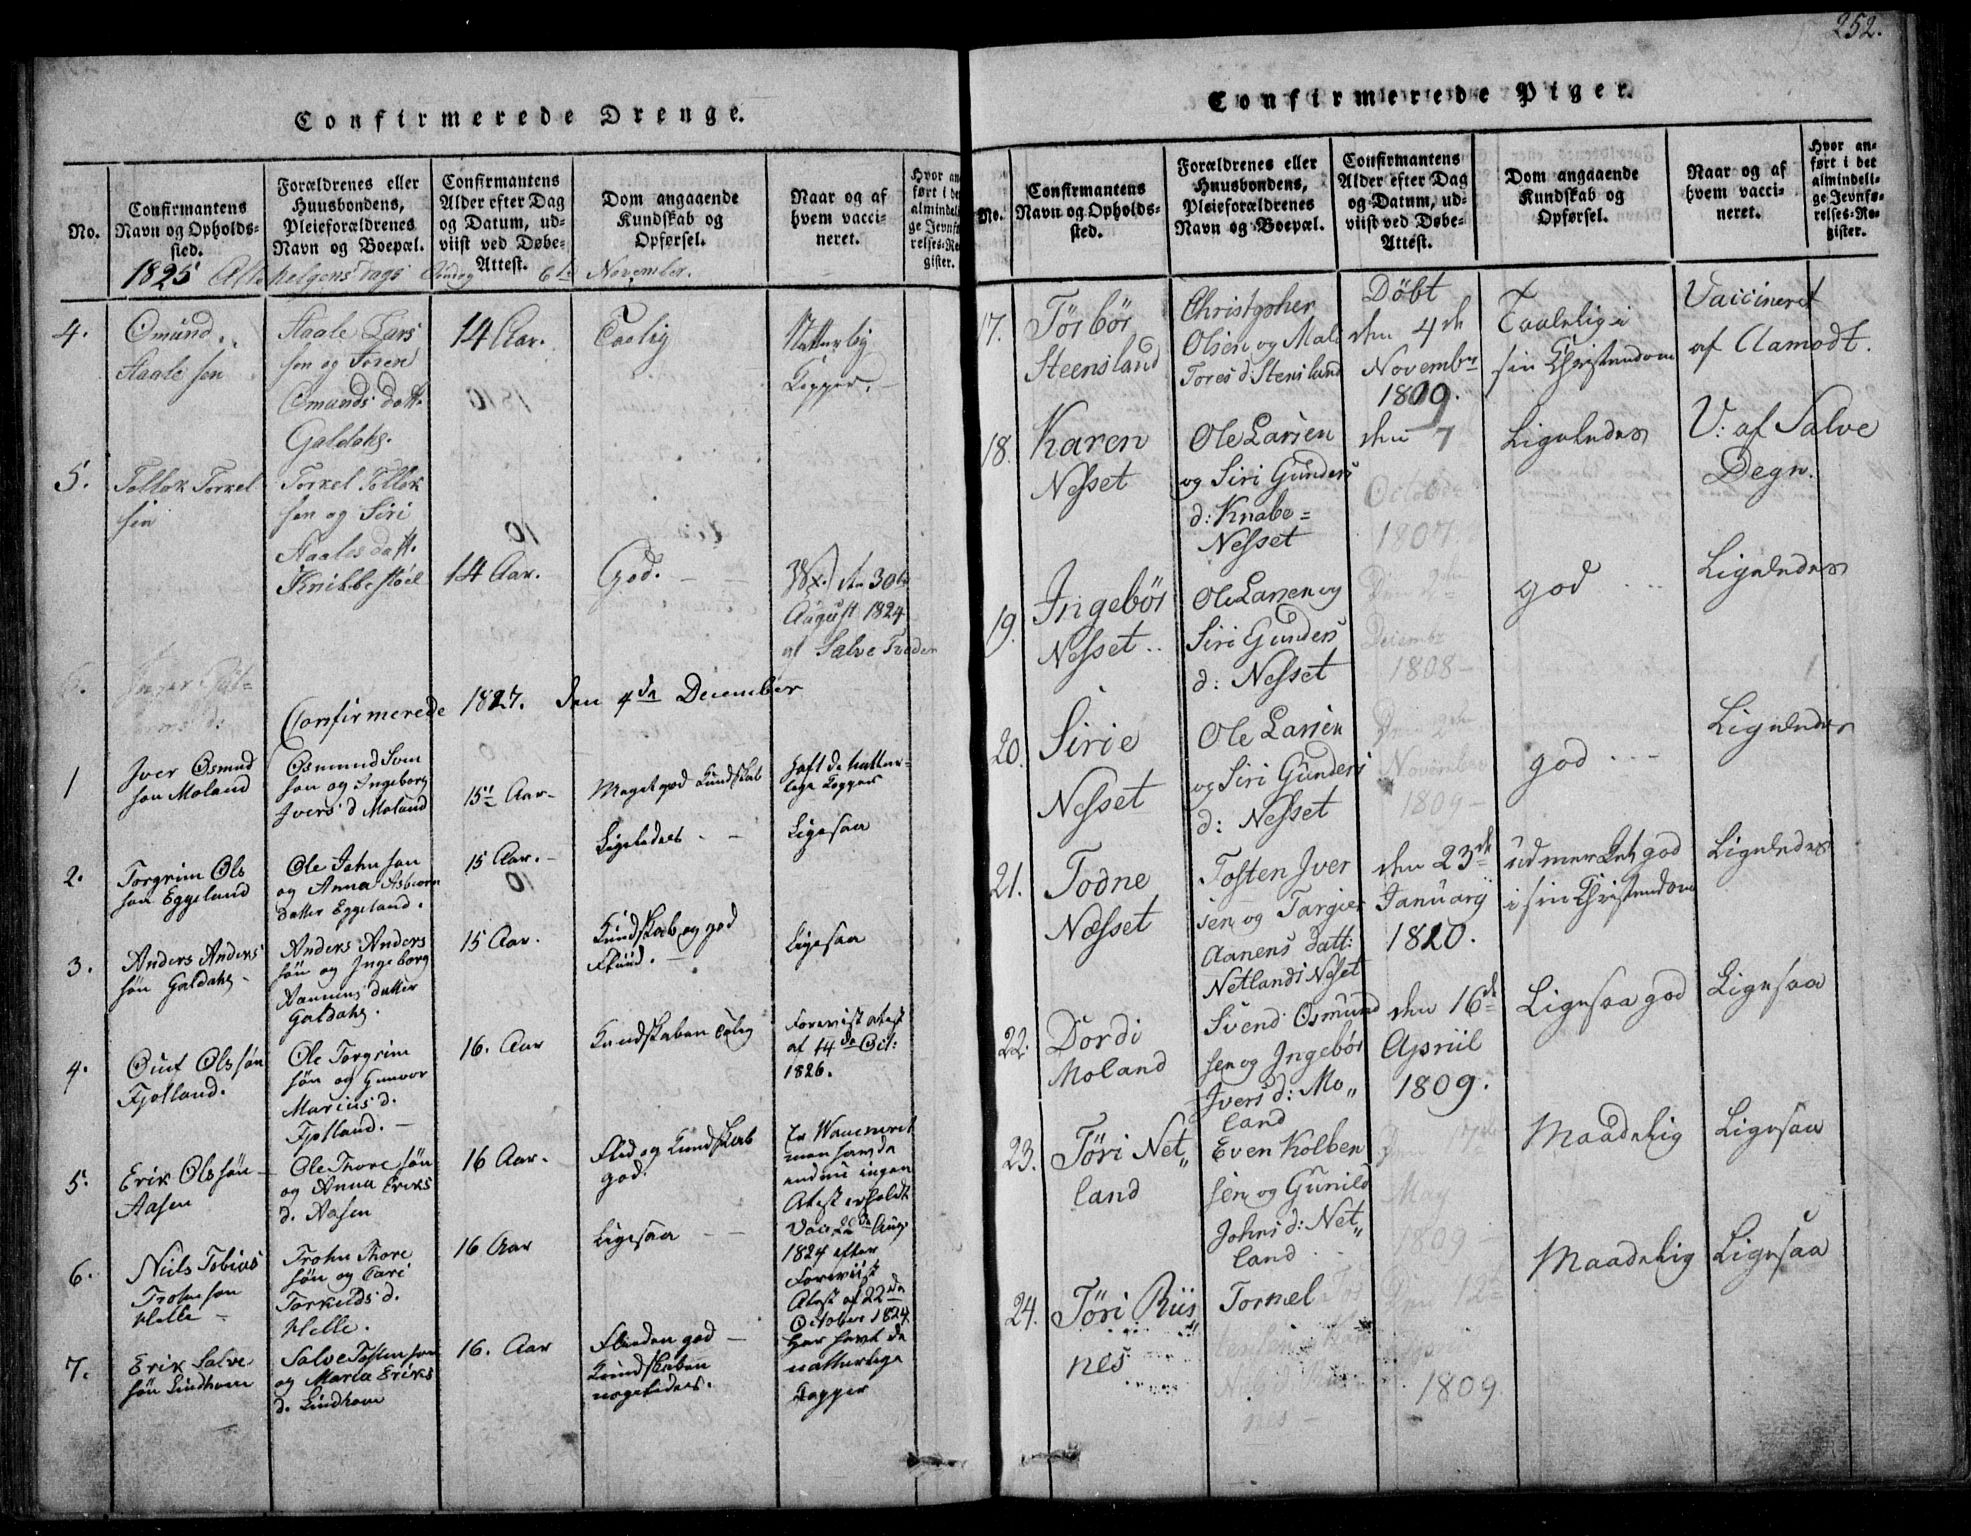 252.
Confirmerede Drenge.
No.
Confirmantens
Navn og Opholds-
sted.
Forældrenes eller
Huusbondens,
Pleieforældrenes
Navn og Boepæl.
Confirmantens
Alder efter Dag
og Datum, ud-
viist ved Døbe-
Attest.
Dom angaaende
Kundskab og
Opførsel.
Naar og af
hvem vacci-
neret.
Hvor an-
ført i det
almindeli-
ge Jevnfø-
relses-Re-
gister.
1825 Allehelgens Dags November.
4.
Omund
Staale sen
Staale Lars
sen og Toren
Omunds datt.
Galdahs.
14 Aar.
Taalig
Natturlig
Kopper.
5.
Tollak Torkel
sen
Torkel Tollak
sen og Siri
Staales datt.
Knibbestøel
14 Aar.
God.
den 30te
August 1824
af Salve Tveden
Confirmerede 1827. den 4de December
1
Iver Osmud
søn Moland
Osmund Sven
søn og Ingeborg
Ivers d Moland
15 Aar-
Meget god Kundskab
haft de nattur-
lige Kopper
2.
Torgrim Ols
søn Eggeland
Ole John søn
og Anna Asbiørn
datter Eggeland.
15 Aar.-
Ligeledes - -
Ligesaa
3.
Anders Anders
søn Galdahs-
Anders Anders
søn og Ingeborg
Aanens datter
Galdahs.
15 Aar.
Kundskab og god
Fliid.
Ligesaa
4.
Olsøn
Fjotland.
Ole Torgrim
søn og Gunvor
Marius d.
Fjotland.-
16. Aar
Kundskaben
Foreviist Atest
af 14de Oct:
1826.
5.
Erik Olssøn-
Aasen
Ole Thore søn
og Anna Eriks
d. Aasen
16 Aar.
Flid og Kundskab
god.
Er Waccineret
men har da
endnu ingen
Atest erholdt
6.
Niels Tobias
Trohnsøn
Helle-
Trohn Thore
søn og Tari
Torkilds d.
Helle.
16 Aar
Ligesaa - -
Vacc. 22de Aug.
1824 efter
Foreviist
Atest af 22de
October 1824.
7.
Erik Salve
søn Lindhom
Salve Tosten søn
og Maria Eriks
d. Lindhom
16. Aar
Fliden god -
Kundskaben
nogeledes.
Har havt de
natturlige
Kopper
Confirmerede Piger.
No.
Confirmantens
Navn og Opholds-
sted.
Forældrenes eller
Huusbondens,
Pleieforældrenes
Navn og Boepæl.
Confirmantens
Alder efter Dag
og Datum, ud-
viist ved Døbe-
Attest.
Dom angaaende
Kundskab og
Opførsel.
Naar og af
hvem vacci-
neret.
Hvor an-
ført i det
almindeli-
ge Jevnfø-
relses-Re-
gister.
17.
Tørbør
Steensland
Christopher
Olsen og Male
Tores d: Stensland
Döbt
den 4de
Novembr
1809.
Taalelig i
sin Christendom
Vaccineret
af Aamodt.
18.
Karen
Nesset
Ole Larsen
og Siri Gunders
d: Knabe=
Nesset
den 7
October
1807.
Ligeledes
V: af Salve
Degn.
19.
Ingebör
Nesset..
Ole Larsen og
Siri Gunders
d: Nesset
Den 2den
Decembr
1808-
god
Ligeledes
20.
Sirie
Nesset
Ole Larsen
og Siri Gunders
d: Nesset
Den 2den
November
1809-
god
Ligeledes
21.
Todne
Næsset
Tosten Iver
sen og Targier
Aanens datt:
Netlands Nesset
den 23de
Januarij
1810.
udmerket god
i sin Christendom
Ligeledes
22.
Dordi
Moland
Svend Osmund
sen og Ingebör
Ivers d: Mo„
land
den 16de
Apriil
1809.
Ligesaa god
Ligesaa
23.
Töri Net„
land
Even Kolben
sen og Gunild
Johns d: Net„
land
Den
May
1809-
Maadelig
Ligesaa
24.
Töri Riis„
nes
Tornel
Den 12te
1809
Maadelig
Ligesaa